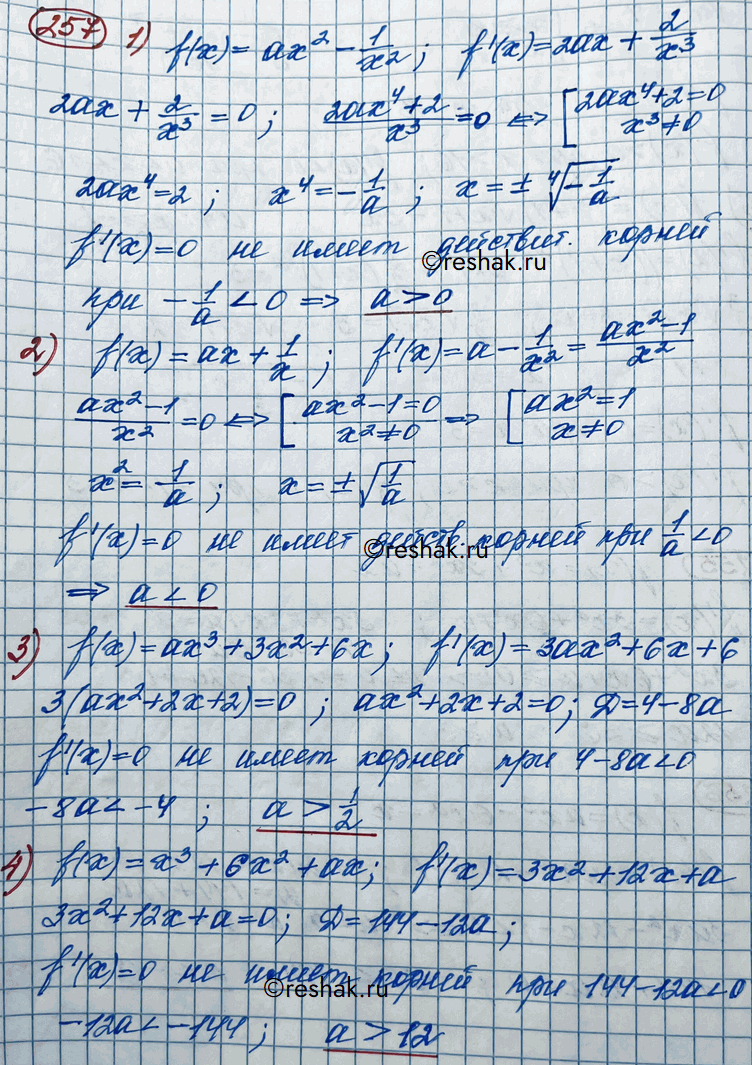 257 1) f(x) = ax² - 1/x²; f'(x) = 2ax + 2/x³
2ax + 2/x³ = 0; (2ax⁴+2)/x³ = 0 <=> [ 2ax⁴+2=0
x³≠0
2ax⁴=2; x⁴=-1/a; x=± ⁴√(-1/a)
f'(x)=0 не имеет действит. корней
©reshak.ru
при -1/a < 0 => a > 0
2) f(x) = ax + 1/x; f'(x) = a - 1/x² = (ax²-1)/x²
(ax²-1)/x² = 0 <=> [ ax²-1=0 => [ ax²=1
x²≠0 x≠0
x² = 1/a; x=± √(1/a)
f'(x)=0 не имеет действ. корней при 1/a < 0
©reshak.ru
=> a < 0
3) f(x) = ax³+3x²+6x; f'(x) = 3ax²+6x+6
3(ax²+2x+2)=0; ax²+2x+2=0; D=4-8a
f'(x)=0 не имеет корней при 4-8a<0
-8a<-4; a > 1/2
4) f(x) = x³+6x²+ax; f'(x) = 3x²+12x+a
3x²+12x+a=0; D=144-12a;
f'(x)=0 не имеет корней при 144-12a<0
©reshak.ru
-12a<-144; a > 12